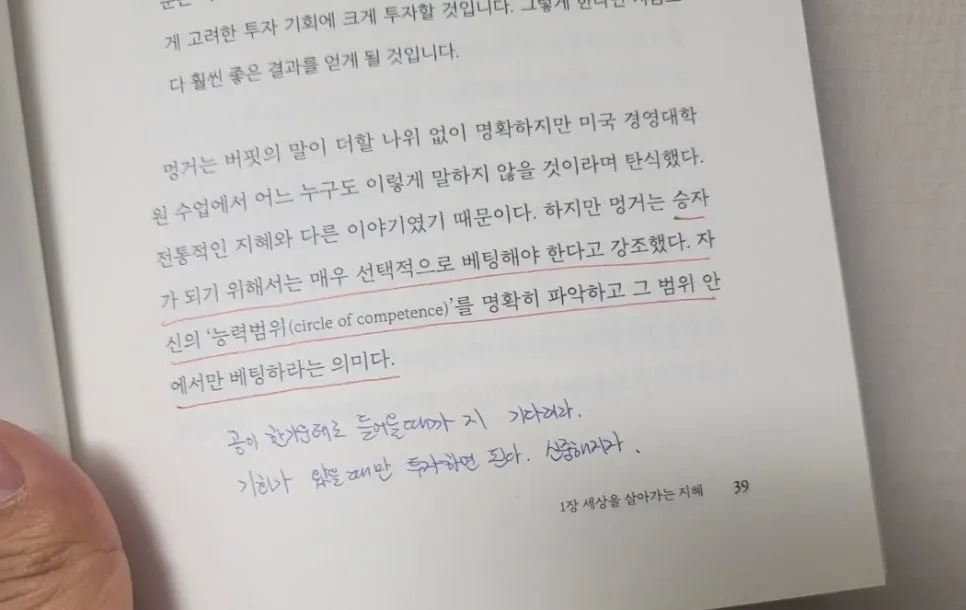 게 고려한 투자 기회에 크게 투자할 것입니다. 그렇게 한다면
다 훨씬 좋은 결과를 얻게 될 것입니다.
멍거는 버핏의 말이 더할 나위 없이 명확하지만 미국 경영대학
원 수업에서 어느 누구도 이렇게 말하지 않을 것이라며 탄식했다.
전통적인 지혜와 다른 이야기였기 때문이다. 하지만 멍거는 승자
가 되기 위해서는 매우 선택적으로 베팅해야 한다고 강조했다. 자
신의 ‘능력범위(circle of competence)’를 명확히 파악하고 그 범위 안
에서만 베팅하라는 의미다.
공이 한가운데로 들어올때까지 기다려라.
기회가 왔을때만 투자하면 된다. 신중해지자.
1장 세상을 살아가는 지혜 39